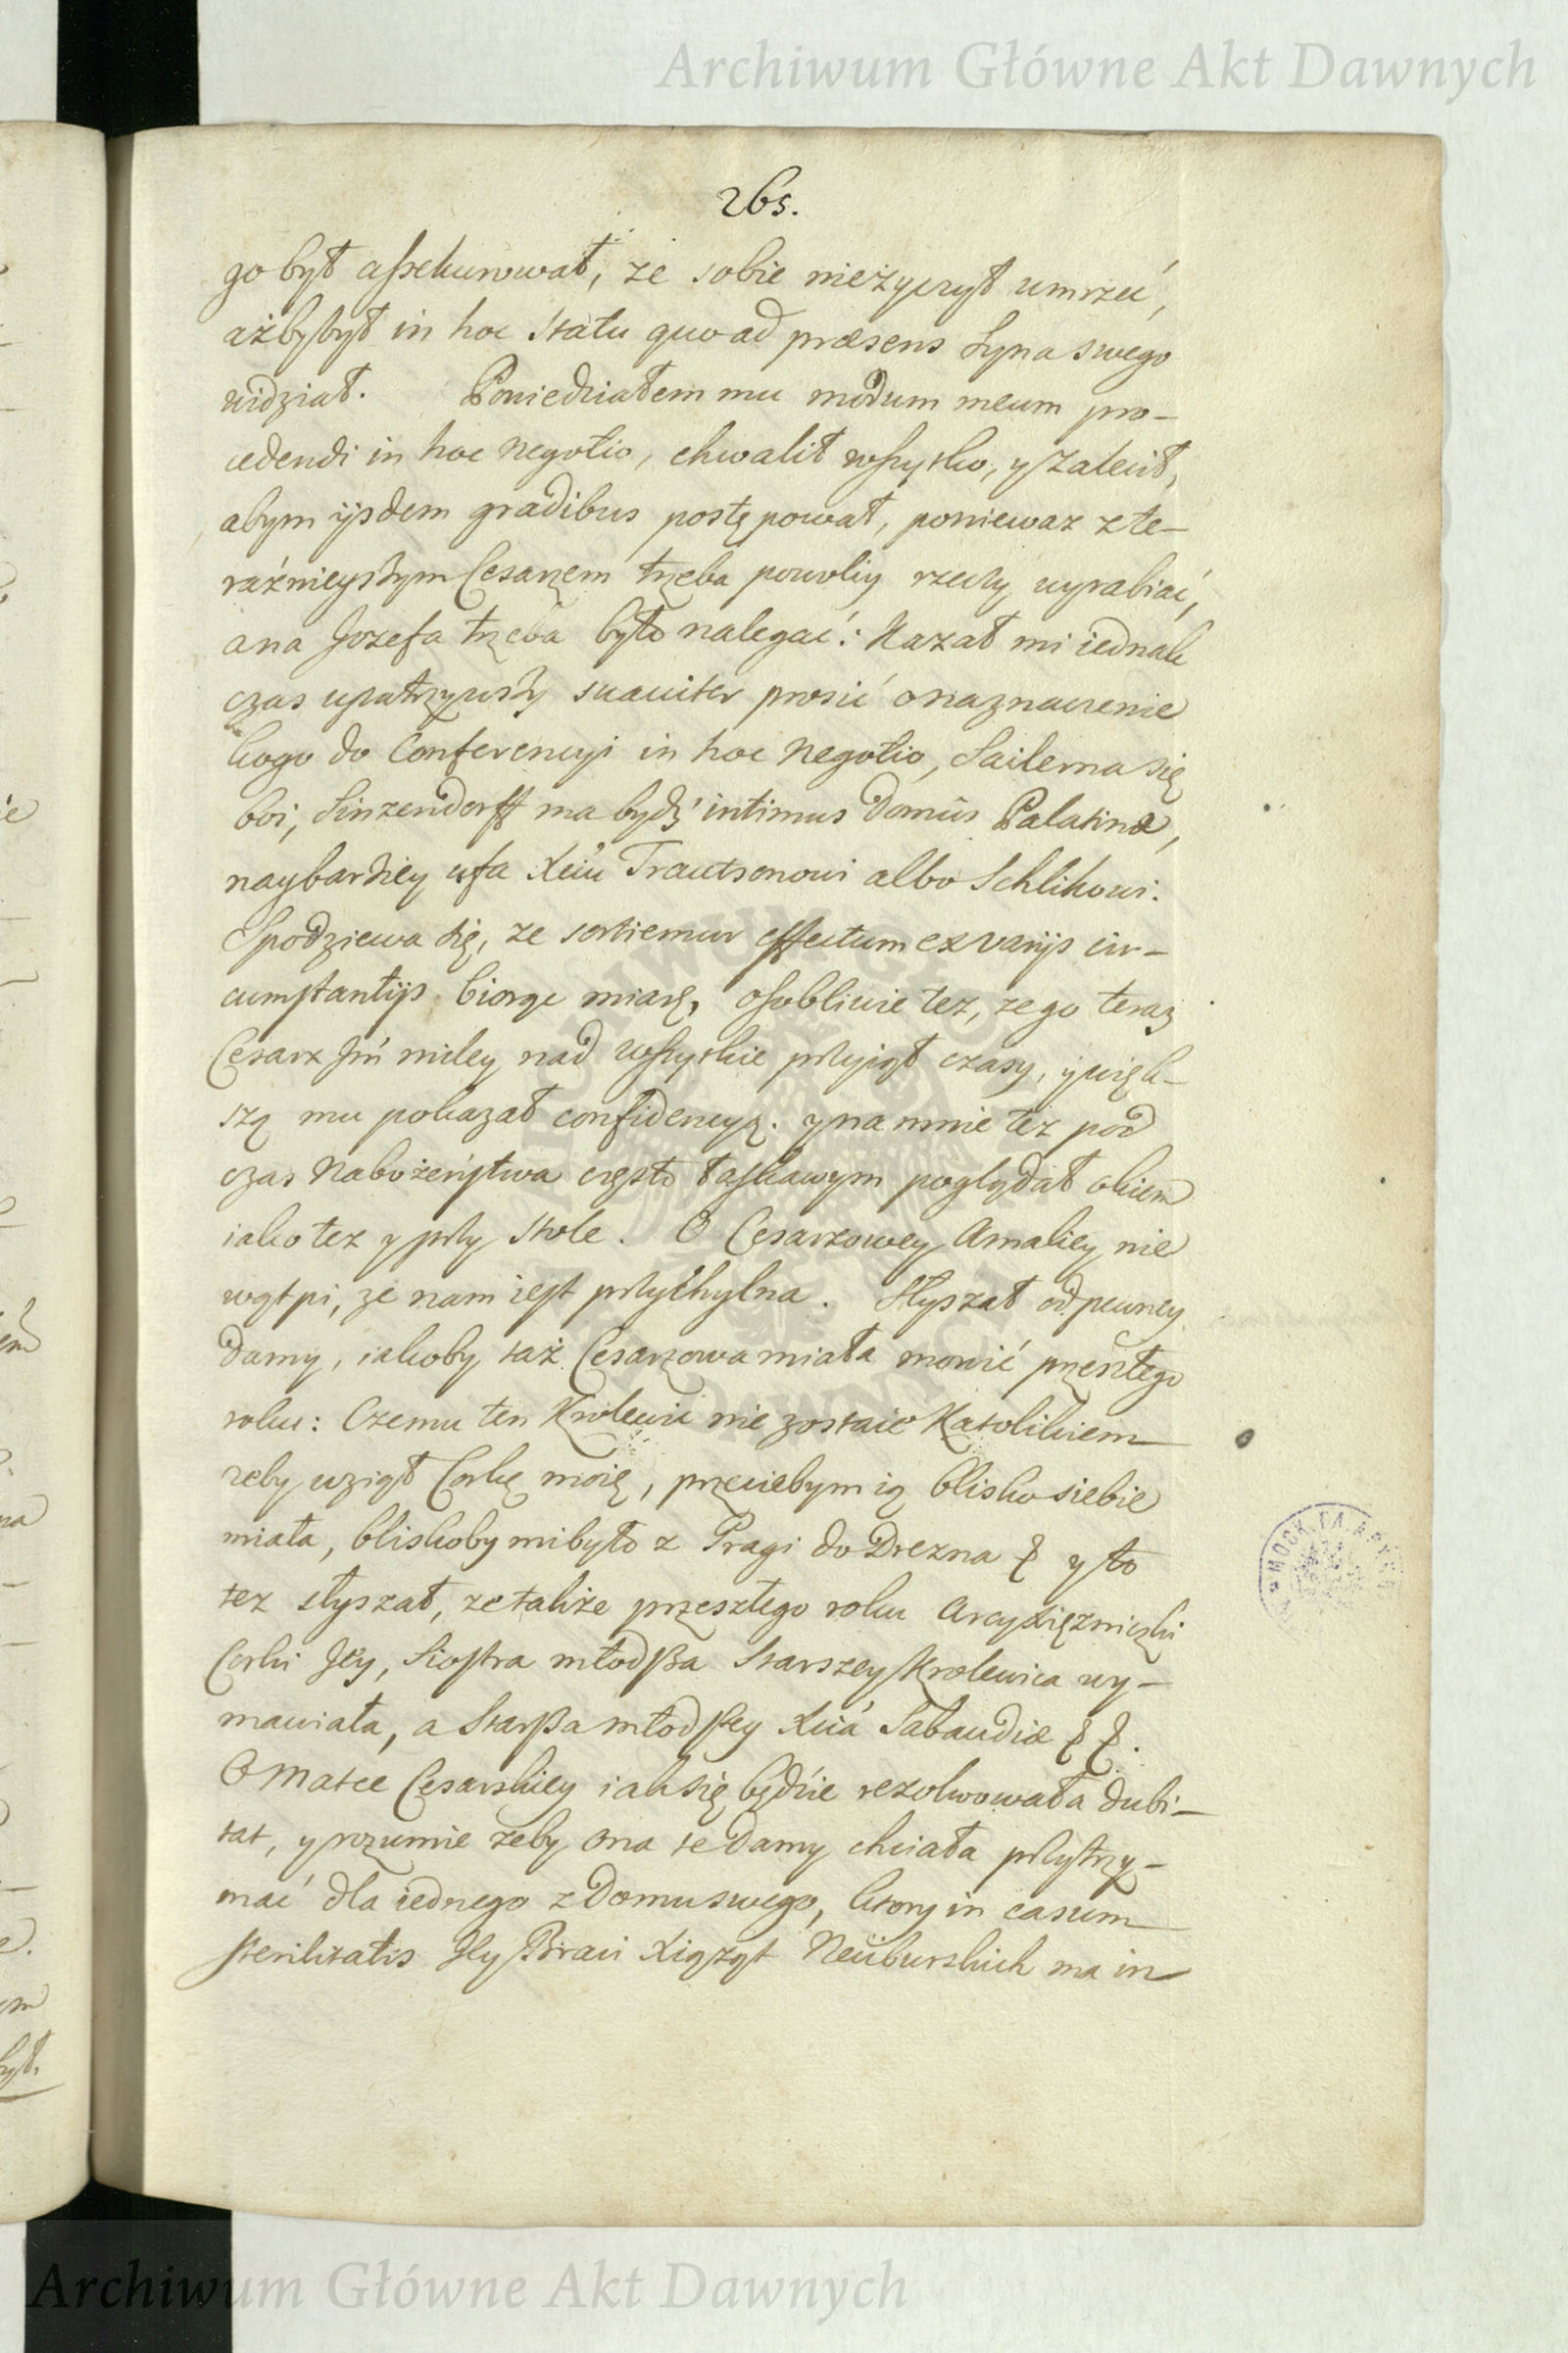 Archiwum Główne Akt Dawnych
265.
go był assekurował, że sobie nieżyczył umrzeć,
ażbybył in hoc statu quo ad præsens Syna swego
widział. Powiedziałem mu modum meum pro-
cedendi in hoc negotio, chwalił wszysko, y zalecił,
abym ijsdem gradibus postępował, poniewaz z te-
raźnieyszym Cesarzem trzeba powoliy rzeczy wyrabiać,
a na Jozefa trzeba było nalegać: Kazał mi iednak
czas upatrzywszy suaviter prosić o naznaczenie
kogo do Conferencyi in hoc negotio, Sailerna się
boi, Sinzendorff ma bydź intimus Domûs Palatinæ,
naybardziey ufa Xciu Trautsonowi albo Schlikowi.
Spodziewa się, ze sortiemur effectum ex varijs cir-
cumstantijs biorąc miarę, osobliwie tez, ze go teraz
Cesarz Jm̃ miley nad wszyskie przyiął czasy, y więk-
szą mu pokazał confidencyą. y na mnie też pod
czas Nabożeństwa często łaskawym poglądał okiem
iako tez y przy stole. O Cesarzowey Amaliey nie
wątpi, ze nam iest przychylna. Słyszał od pewney
Damy, iakoby taż Cesarzowa miała mowić przeszłego
roku: Czemu ten Krolewic nie zostaie Katolikiem
zeby wziął Corkę moię, przeciebym ią blisko siebie
miała, bliskoby mi było z Pragi do Drezna & y to
tez słyszał, ze także przeszłego roku Arcyxiężniczki
Corki Jey, Siostra młodsza Starszey Krolewica wy-
mawiała, a Starsza młodszey Xcia Sabaudiæ & &.
O Matce Cesarskiey iak się będzie rezolwowała dubi-
tat, y rozumie zeby ona te Damy chciała przytrzy-
mać dla iednego z Domu swego, ktory in casum
sterilitatis Jey Braci Xiążąt Neüburskich ma in
Archiwum Główne Akt Dawnych